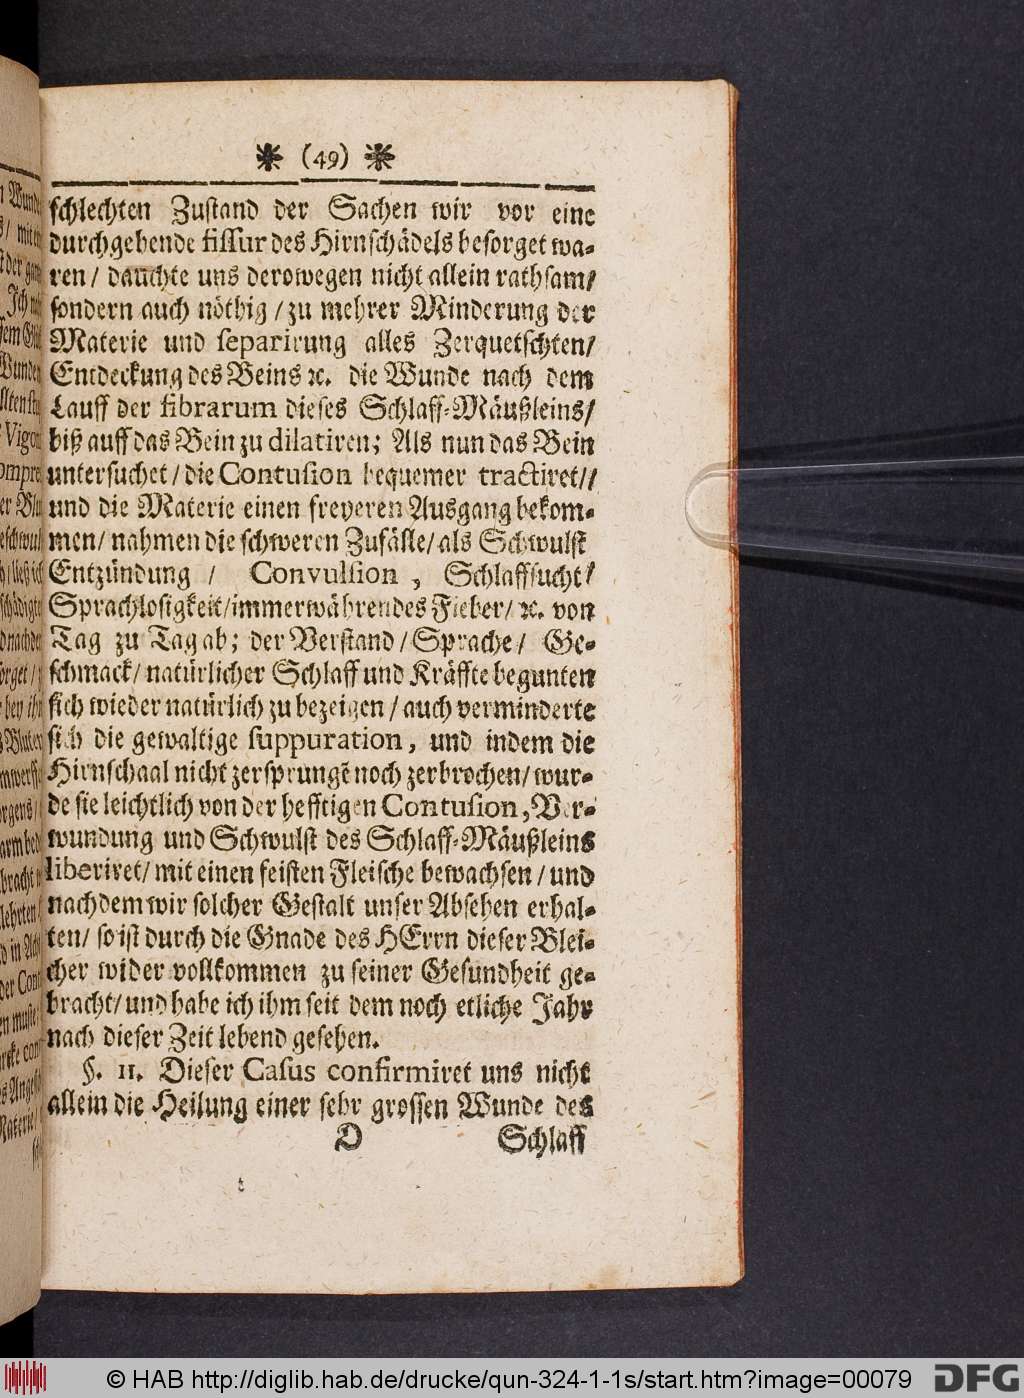 (49)
schlechten Zustand der Sachen wir vor eine
durchgehende fissur des Hirnschädels besorget wa-
ren/ dauchte uns derowegen nicht allein rathsam/
sondern auch nöthig / zu mehrer Minderung der
Materie und separirung alles Zerquetschten/
Entdeckung des Beins ꝛc. die Wunde nach dem
Lauff der fibrarum dieses Schlaff-Mäußleins/
biß auff das Bein zu dilatiren; Als nun das Bein
untersuchet / die Contusion bequemer tractiret//
und die Materie einen freyeren Ausgang bekom-
men/ nahmen die schweren Zufälle/ als Schwulst
Entzündung / Convulsion , Schlaffsucht/
Sprachlosigkeit/immerwährendes Fieber/ ꝛc. von
Tag zu Tag ab; der Verstand / Sprache / Ge-
schmack/ natürlicher Schlaff und Kräffte begunten
sich wieder natürlich zu bezeigen / auch verminderte
sich die gewaltige suppuration, und indem die
Hirnschaal nicht zersprungẽ noch zerbrochen/ wur-
de sie leichtlich von der hefftigen Contusion, Ver-
wundung und Schwulst des Schlaff-Mäußleins
liberiret/ mit einen feisten Fleische bewachsen / und
nachdem wir solcher Gestalt unser Absehen erhal-
ten/ so ist durch die Gnade des HErrn dieser Blei-
cher wider vollkommen zu seiner Gesundheit ge-
bracht/ und habe ich ihm seit dem noch etliche Jahr
nach dieser Zeit lebend gesehen.
§. 11. Dieser Casus confirmiret uns nicht
allein die Heilung einer sehr grossen Wunde des
D Schlaff
© HAB http://diglib.hab.de/drucke/qun-324-1-1s/start.htm?image=00079
DFG